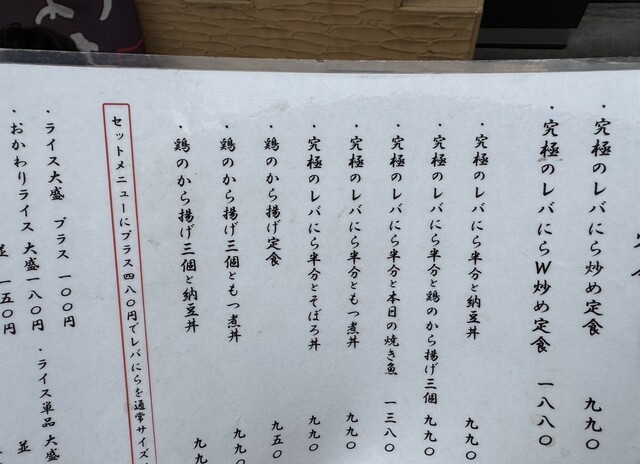 ・究極のレバにら炒め定食 九九〇
・究極のレバにらW炒め定食 一八八〇
・究極のレバにら半分と納豆丼 九九〇
・究極のレバにら半分と鶏のから揚げ三個 九九〇
・究極のレバにら半分と本日の焼き魚 一三八〇
・究極のレバにら半分ともつ煮丼 九九〇
・究極のレバにら半分とそぼろ丼 九九〇
・鶏のから揚げ定食 九五〇
・鶏のから揚げ三個ともつ煮丼 九九〇
・鶏のから揚げ三個と納豆丼 九九
セットメニューにプラス四八〇円でレバにらを通常サイズ
・ライス大盛 プラス 一〇〇円 ・ライス単品 大盛
・おかわりライス 大盛 一八〇円 並
並 一五〇円